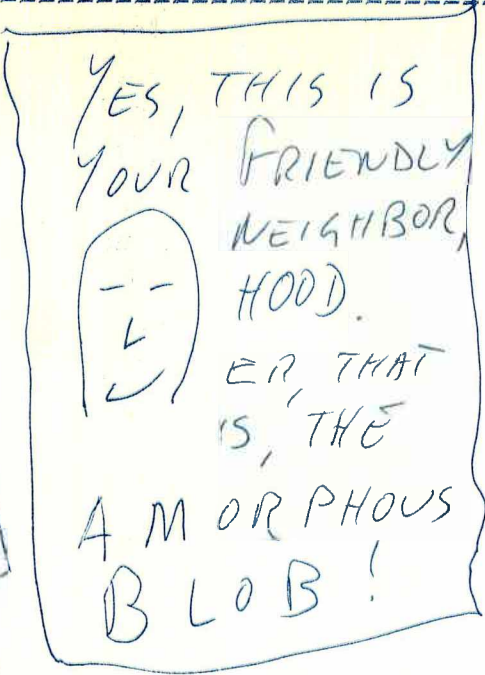 YES, THIS IS
YOUR FRIENDLY
NEIGHBOR,
HOOD.
ER, THAT
IS, THE
AMORPHOUS
BLOB!